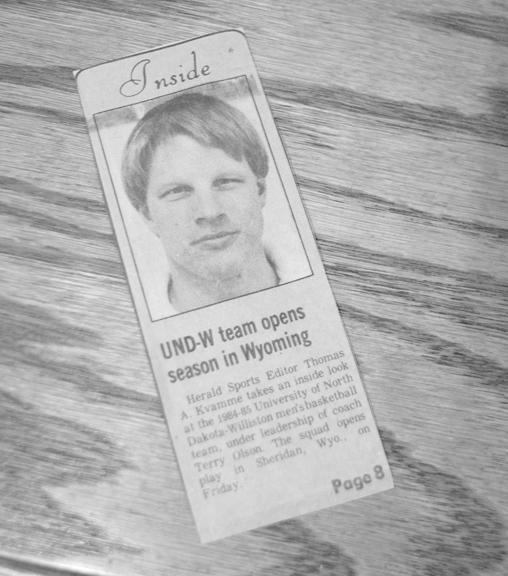 Inside
UND-W team opens
season in Wyoming
Herald Sports Editor Thomas
A. Kvamme takes an inside look
at the 1984-85 University of North
Dakota-Williston men's basketball
team, under leadership of coach
Terry Olson. The squad opens
play in Sheridan, Wyo., on
Friday.
Page 8